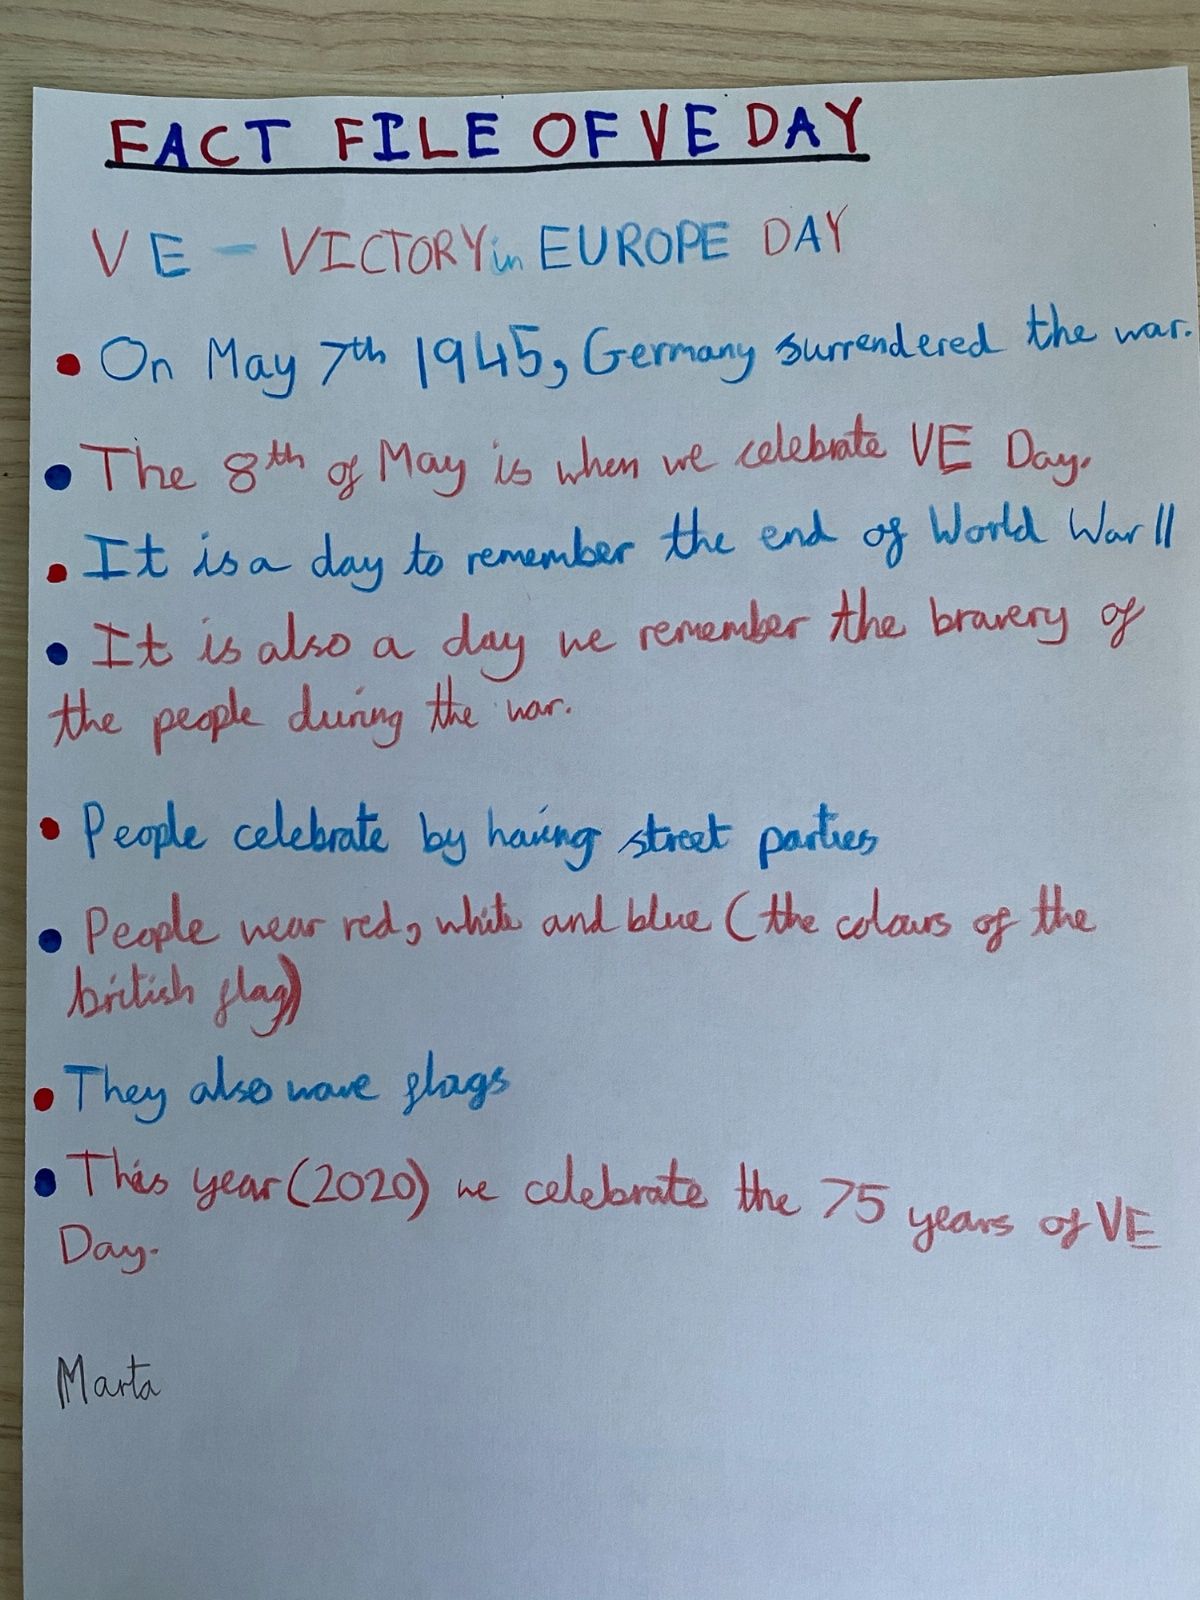 FACT FILE OF VE DAY
VE - VICTORY in EUROPE DAY
• On May 7th 1945, Germany surrendered the war.
• The 8th of May is when we celebrate VE Day.
• It is a day to remember the end of World War II
• It is also a day we remember the bravery of
the people during the war.
• People celebrate by having street parties
• People wear red, white and blue (the colours of the
british flag)
• They also wave flags
• This year (2020) we celebrate the 75 years of VE
Day.
Marta